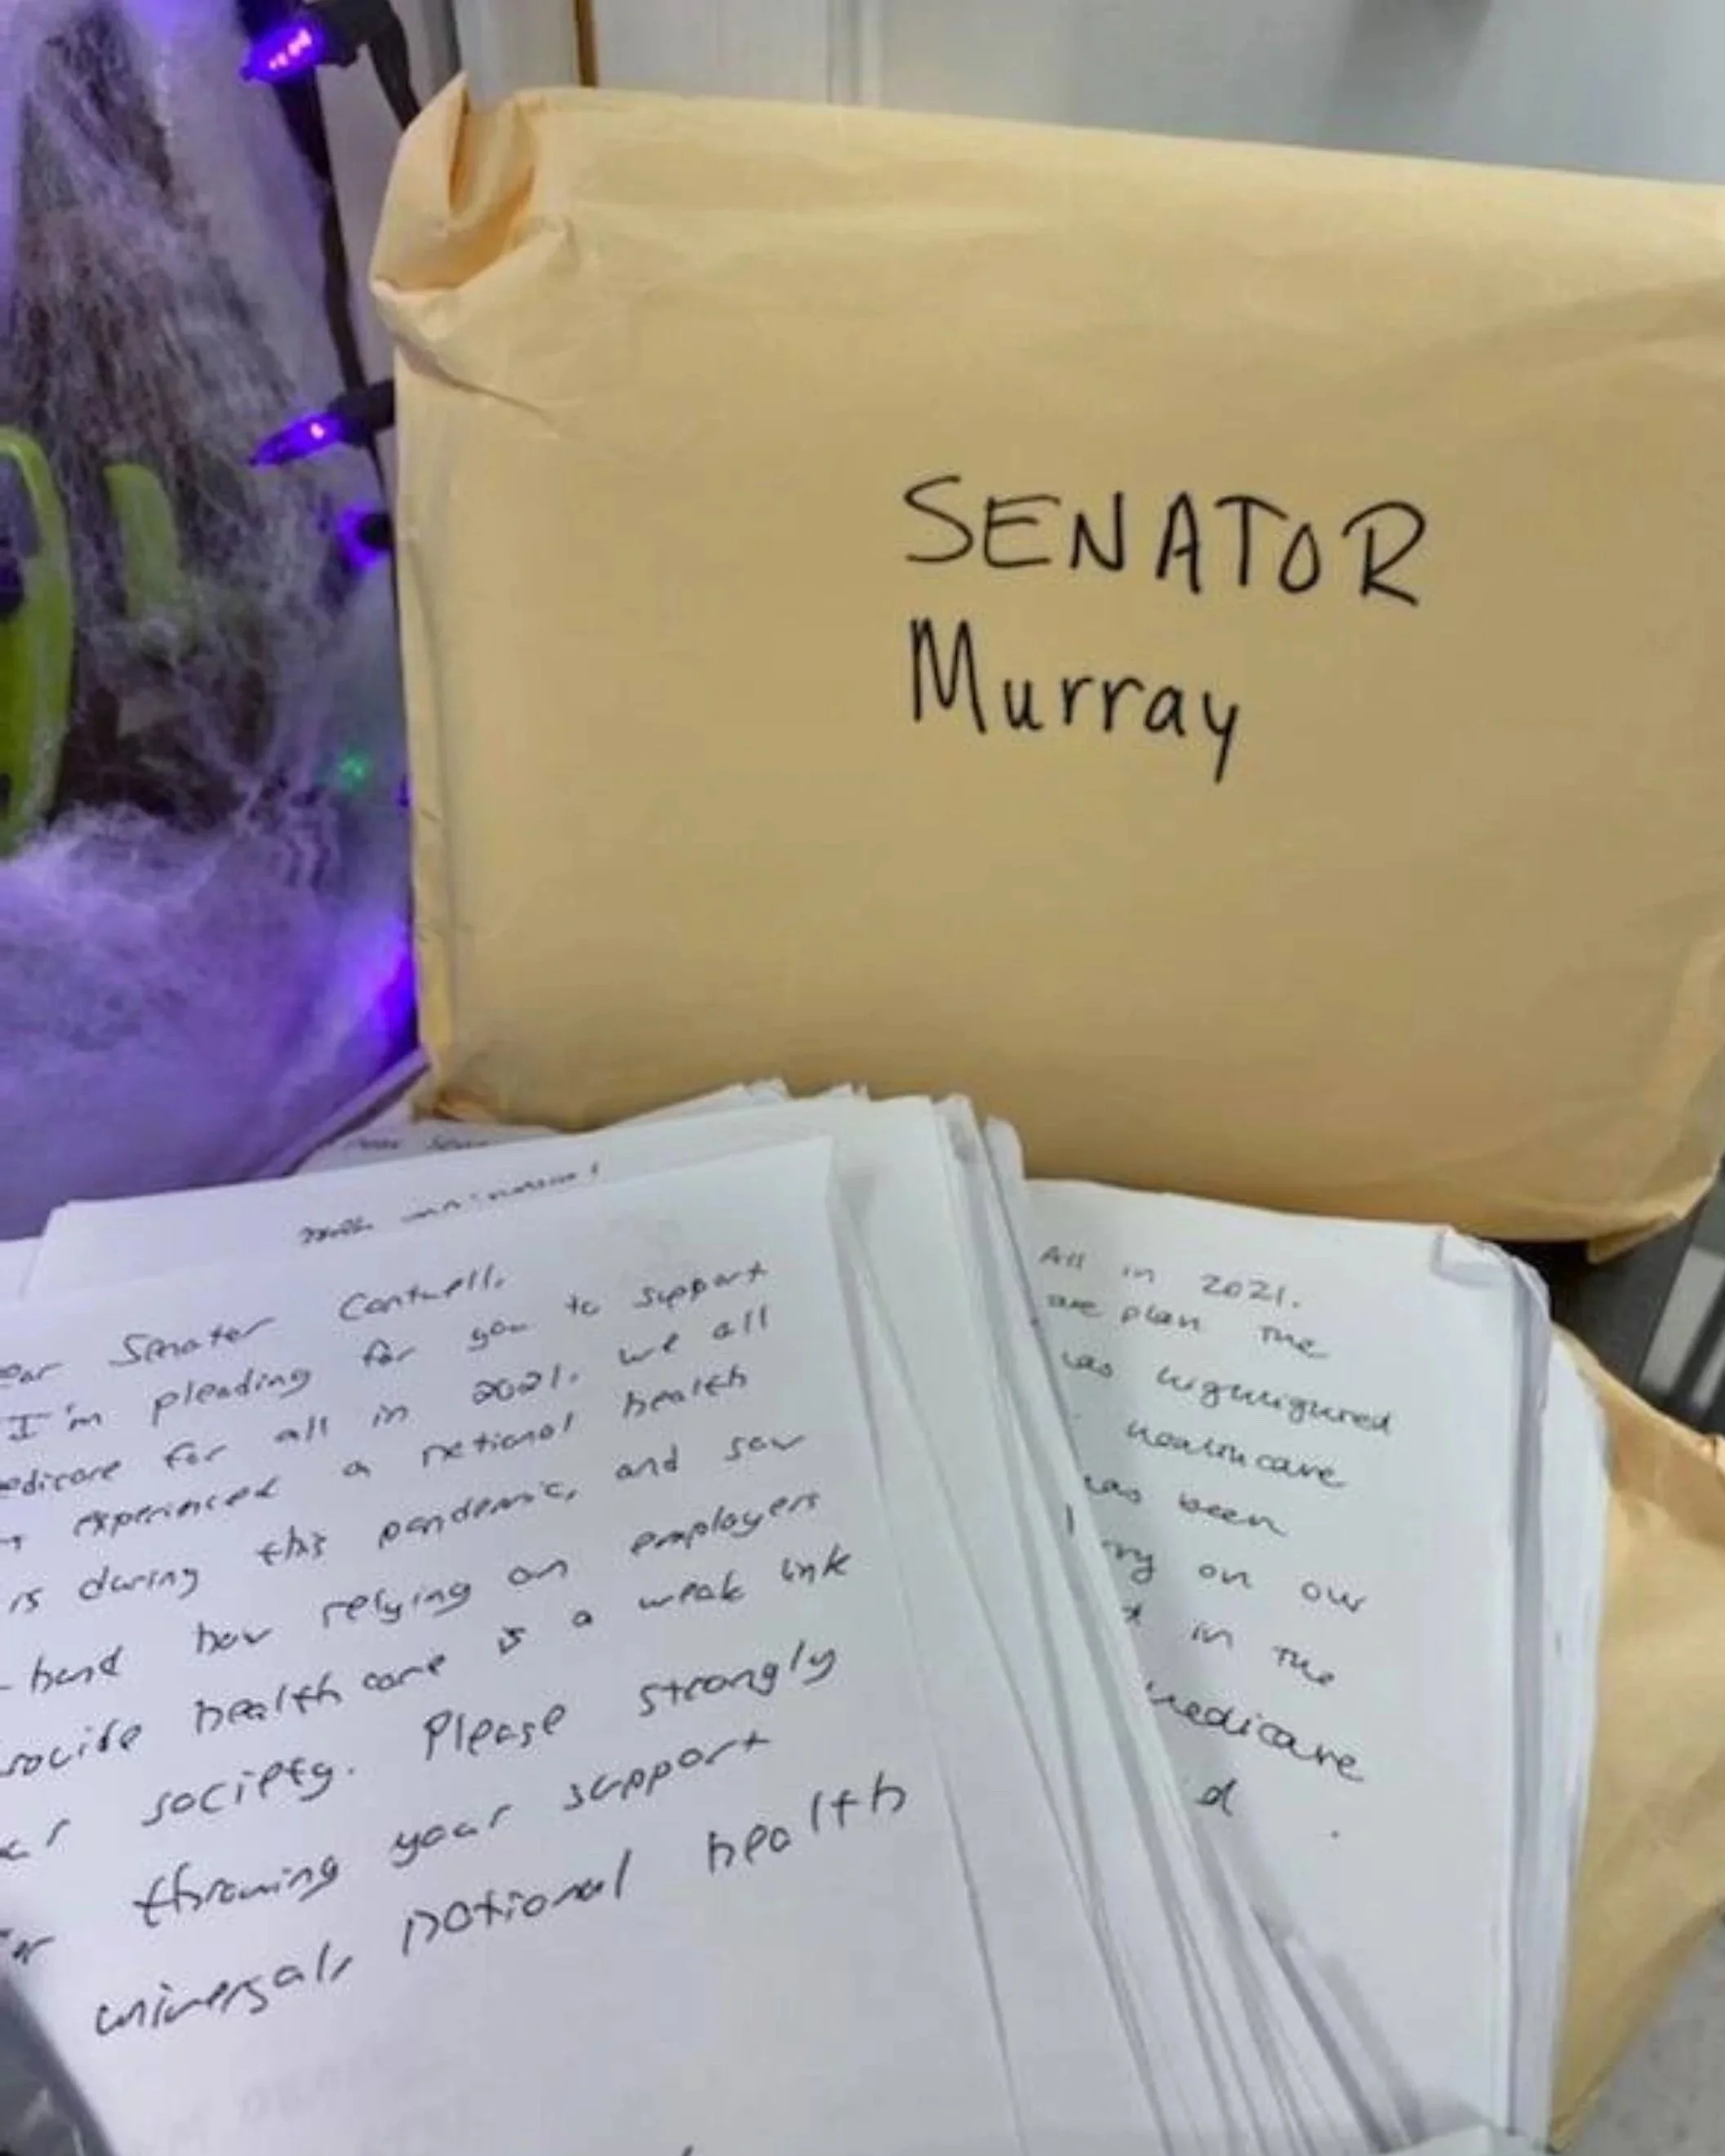 SENATOR
Murray
ear Senator Cantwell,
I'm pleading for you to support
edicare for all in 2021. we all
experienced a national health
is during this pandemic, and saw
-hand how relying on employers
rovide health care is a weak link
ur society. Please strongly
throwing your support
universal, national health
All in 2021.
are plan the
was highlighted
healthcare
has been
ry on our
d in the
medicare
d